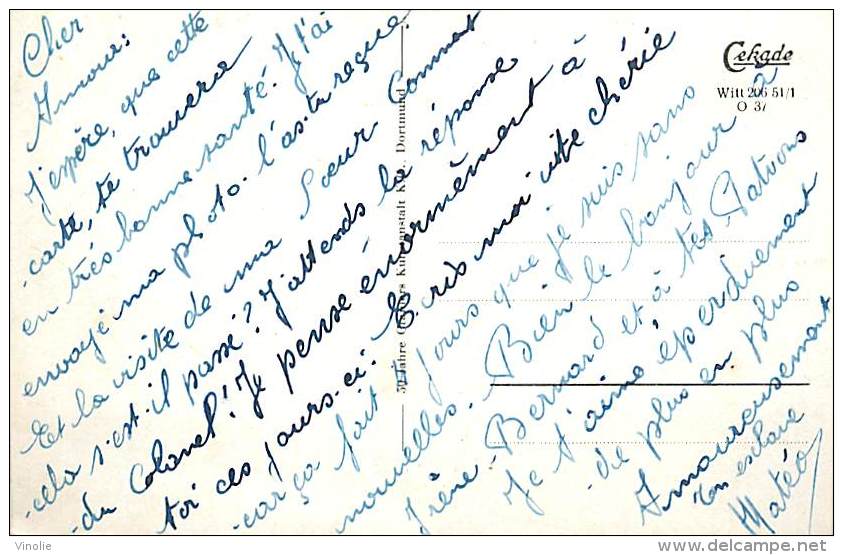 Cher
Amour:
J'espère, que cette
-carte, te trouvera
en très bonne santé. Je t'ai
envoyé ma photo. l'as-tu reçue
Et la visite de ma Sœur. Comment
-cela s'est-il passé? J'attends la réponse
-du Colonel! Je pense énormément à
toi ces jours-ci. Ecris moi vite chérie
-car ça fait jours que je suis sans
nouvelles. Bien le bonjour à
Irène - Bernard et à tes Patrons
Je t'aime éperduement
-de plus en plus
Amoureusement
Ton esclave
Matéo
Cekade
Witt 206 51/1
O 37
50 Jahre Kunstanstalt Dortmund
© Vinolie
www.delcampe.net